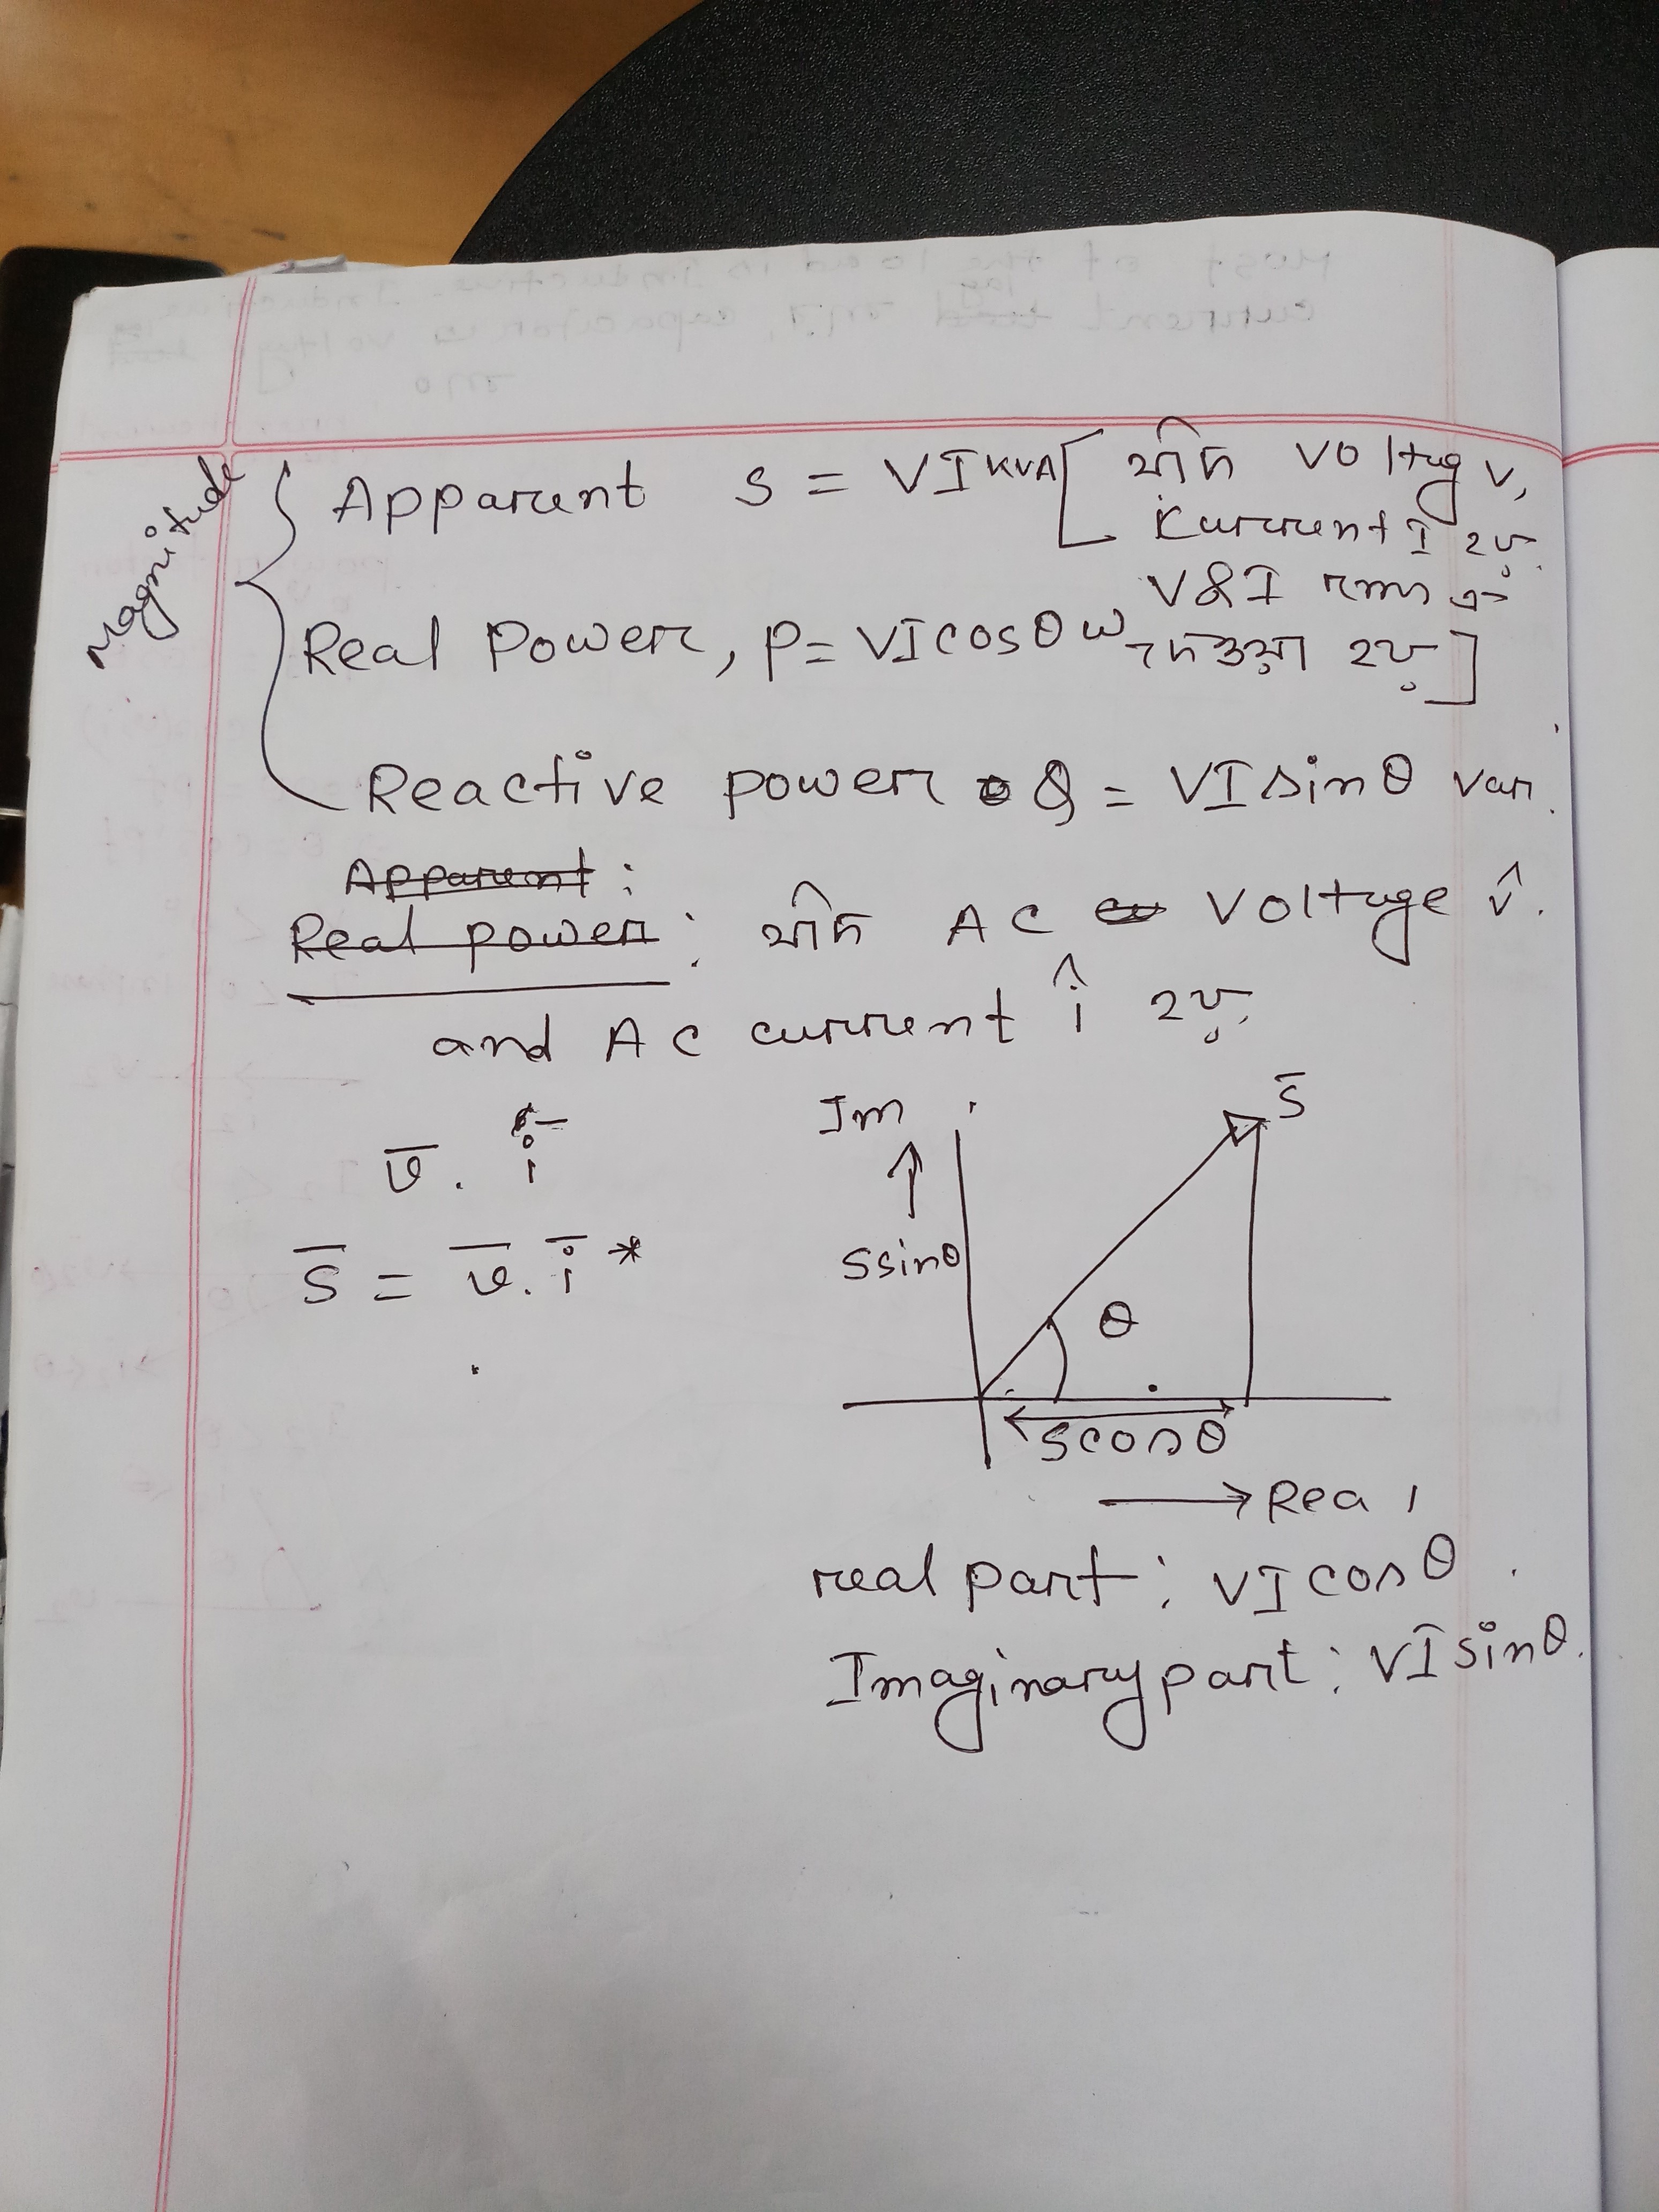 Magnitude
Apparent S = VI KVA [ যদি Voltag V,
Current I হয়.
V&I rms এ
Real Power, P = VI cosθ W দেওয়া হয় ]
Reactive power Q = VI sinθ Var.
Apparent :
Real power : যদি AC Voltage v̂.
and AC current î হয়.
v̅ . i̅
S̅ = v̅ . i̅ *
Im
S̅
S sinθ
θ
S cosθ
→ Real
real part : VI cosθ .
Imaginary part : VI sinθ.